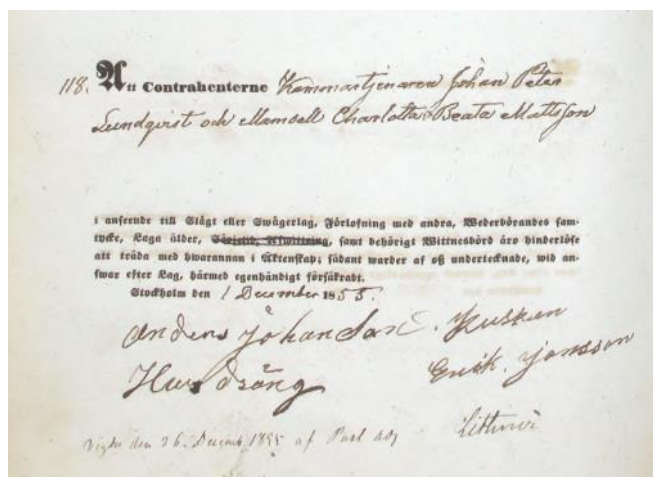 118. Att Contrahenterne Kammartjenaren Johan Peter
Lundqvist och Mamsell Charlotta Beata Mattsson
i anseende till Slägt eller Swågerlag, Förlofning med andra, Wederbörandes sam-
tycke, Laga ålder, samt behörigt Wittnesbörd äro hinderlöse
att träda med hwarannan i Äktenskap; sådant warder af oß undertecknade, wid an-
swar efter Lag, härmed egenhändigt försäkradt.
Stockholm den 1 December 1855.
Anders Johansson. Kusken
Husdräng Erik. Jonsson
Vigde den 26. Decemb. 1855 af Past.